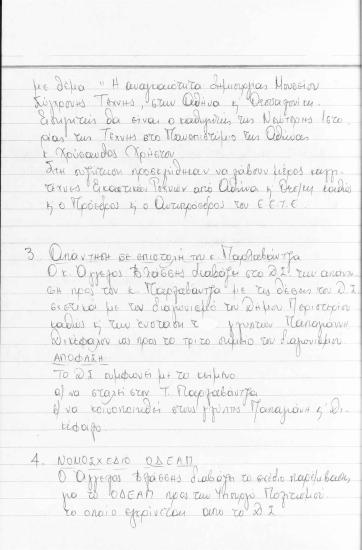 με θέμα "Η αναγκαιότητα δημιουργίας Μουσείου
Σύγχρονης Τέχνης, στην Αθήνα ή Θεσσαλονίκη.
Εισηγητής θα είναι ο καθηγητής της Νεώτερης Ιστο
ρίας της Τέχνης στο Πανεπιστήμιο της Αθήνας
κ Χρύσανθος Χρήστου
Στη συζήτηση προσκλήθηκαν να λάβουν μέρος καλλι
τέχνες Εικαστικών Τεχνών από Αθήνα ή Θες/κη καθώς
ή ο Πρόεδρος ή ο Αντιπρόεδρος του ΕΕΤΕ
3. Απάντηση σε επιστολή του κ. Παρλαβάντζα
Ο κ. Άγγελος Βλάσσης διαβάζει στο ΔΣ την απάν
ση προς τον κ. Παρλαβάντζα με τις θέσεις του ΔΣ
σχετικά με τον διαγωνισμό του Δήμου Περιστερίου
καθώς ή την ένσταση τ γλυπτών Παπαγιάννη
Δικέφαλου ως προς το τρίτο σημείο του διαγωνισμού.
ΑΠΟΦΑΣΗ
Το ΔΣ συμφωνεί με το κείμενο
α) να σταλεί στον Τ. Παρλαβάντζα
β) να κοινοποιηθεί στους γλύπτες Παπαγιάννη ή Δι
κέφαλο.
4. ΝΟΜΟΣΧΕΔΙΟ ΟΔΕΑΠ
Ο Άγγελος Βλάσσης διαβάζει το σχέδιο παρέμβασης
για το ΟΔΕΑΠ προς την Υπουργό Πολιτισμού
το οποίο εγκρίνεται από το ΔΣ